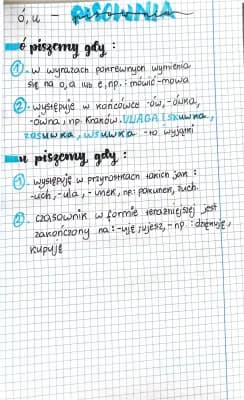 ó, u - PISOWNIA
ó piszemy gdy :
1. - w wyrazach pokrewnych wymienia
się na o, a lub e, np. : mówić - mowa
2. - występuje w końcówce -ów, -ówka,
-ówna, np: Kraków. UWAGA! SKUWKA,
ZASUWKA, WSUWKA - to wyjątki
u piszemy gdy :
1. - występuję w przyrostkach takich jak :
-uch, -ula, -unek, np: pakunek, zuch.
2. - czasownik w formie teraźniejszej jest
zakończony na : -uję, ujesz, - np. : dziękuję,
kupuję